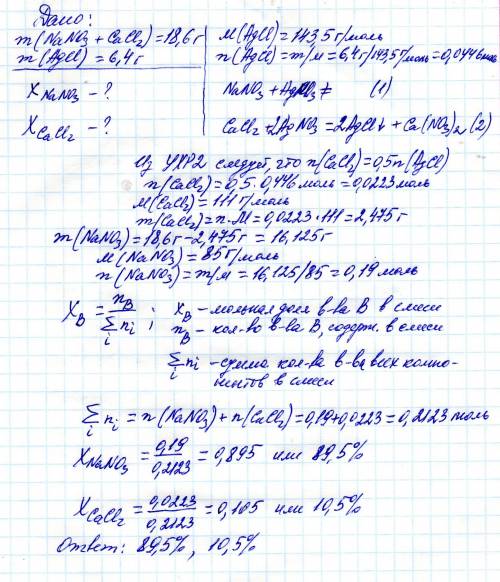 Дано:
m(NaNO₃ + CaCl₂) = 18,6г
m(AgCl) = 6,4г
X NaNO₃ - ?
X CaCl₂ - ?
M(AgCl) = 143,5 г/моль
n(AgCl) = m/M = 6,4г/143,5г/моль = 0,0446моль
NaNO₃ + AgNO₃ ≠ (1)
CaCl₂ + 2AgNO₃ = 2AgCl↓ + Ca(NO₃)₂ (2)
Из УХР2 следует, что n(CaCl₂) = 0,5n(AgCl)
n(CaCl₂) = 0,5·0,446 моль = 0,0223 моль
M(CaCl₂) = 111 г/моль
m(CaCl₂) = n·M = 0,0223·111 = 2,475 г
m(NaNO₃) = 18,6г - 2,475г = 16,125г
M(NaNO₃) = 85г/моль
n(NaNO₃) = m/M = 16,125/85 = 0,19 моль
X_B = n_B / Σ n_i ; X_B - мольная доля в-ва В в смеси
n_B - кол-во в-ва В, содерж. в смеси
Σ n_i - сумма кол-ва в-ва всех компо-
нентов в смеси
Σ n_i = n(NaNO₃) + n(CaCl₂) = 0,19 + 0,0223 = 0,2123 моль
X NaNO₃ = 0,19/0,2123 = 0,895 или 89,5%
X CaCl₂ = 0,0223/0,2123 = 0,105 или 10,5%
Ответ: 89,5%, 10,5%